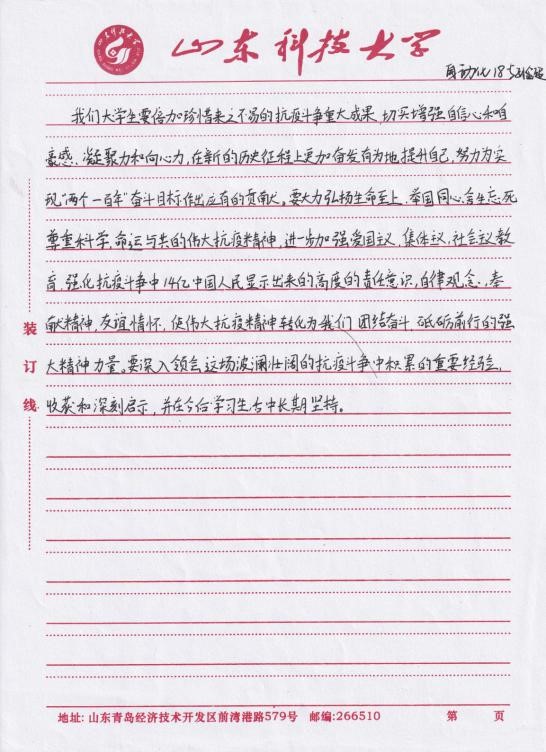 山东科技大学
自动化18-5
我们大学生要倍加珍惜来之不易的抗疫斗争重大成果,切实增强自信心和自
豪感、凝聚力和向心力,在新的历史征程上更加奋发有为地提升自己,努力为实
现"两个一百年"奋斗目标作出应有的贡献。要大力弘扬生命至上、举国同心、舍生忘死、
尊重科学、命运与共的伟大抗疫精神,进一步加强爱国主义、集体主义、社会主义教
育,强化抗疫斗争中14亿中国人民显示出来的高度的责任意识,自律观念,奉
献精神,友谊情怀,使伟大抗疫精神转化为我们团结奋斗、砥砺前行的强
大精神力量。要深入领会这场波澜壮阔的抗疫斗争中积累的重要经验,
收获和深刻启示,并在今后学习生活中长期坚持。
装
订
线
地址: 山东青岛经济技术开发区前湾港路579号 邮编:266510 第 页